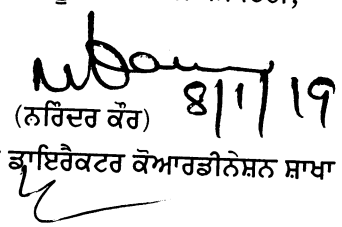 8/1/19
(ਨਰਿੰਦਰ ਕੌਰ)
ਡਾਇਰੈਕਟਰ ਕੋਆਰਡੀਨੇਸ਼ਨ ਸ਼ਾਖਾ